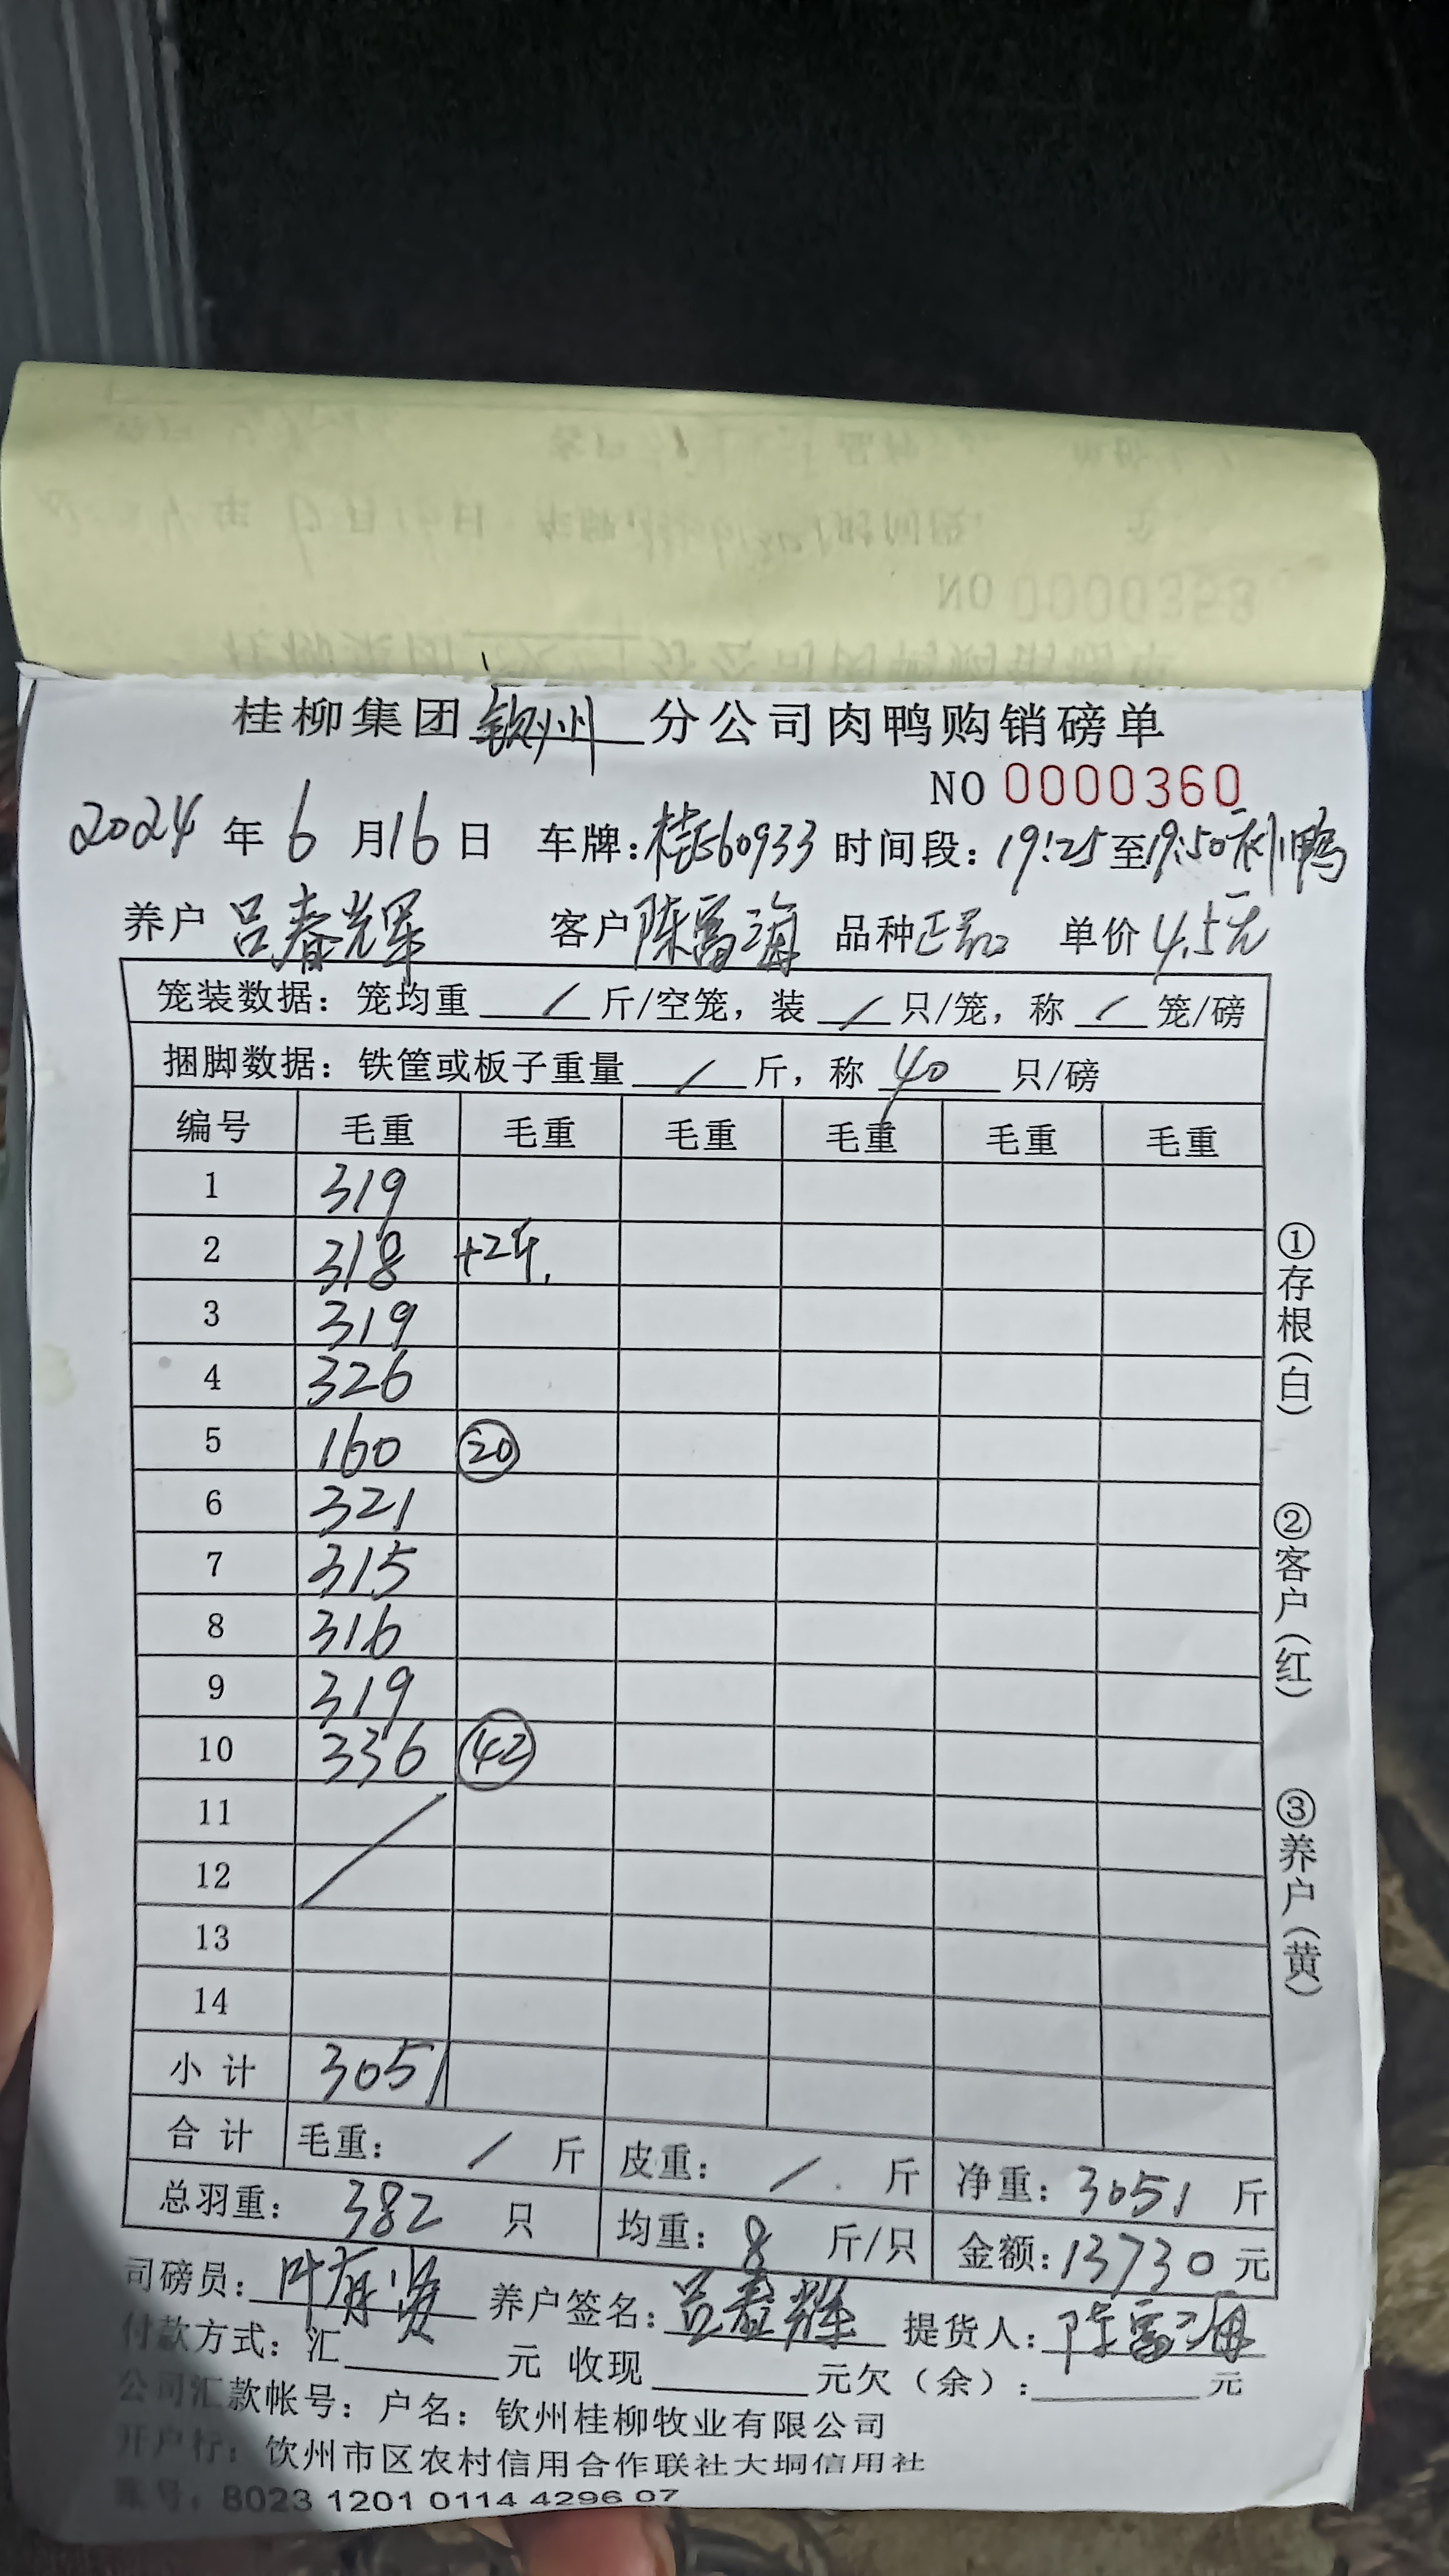 NO 0000358
桂柳集团 钦州 分公司肉鸭购销磅单
NO 0000360
2024 年 6 月 16 日 车牌:桂E60933 时间段: 19:25 至 19:50 剥鸭
养户 吕春辉 客户 陈富海 品种 正品 单价 4.5元
笼装数据: 笼均重 / 斤/空笼, 装 / 只/笼, 称 / 笼/磅
捆脚数据: 铁筐或板子重量 / 斤, 称 40 只/磅
编号 毛重 毛重 毛重 毛重 毛重 毛重
1 319
2 318 +2斤.
3 319
4 326
5 160 ⑳
6 321
7 315
8 316
9 319
10 336 ㊷
11 /
12
13
14
小计 3051
合计 毛重: / 斤 皮重: / 斤 净重: 3051 斤
总羽重: 382 只 均重: 8 斤/只 金额: 13730 元
司磅员: 叶有贤 养户签名: 吕春辉 提货人: 陈富海
付款方式: 汇 元 收现 元欠(余): 元
公司汇款帐号: 户名: 钦州桂柳牧业有限公司
开户行: 钦州市区农村信用合作联社大垌信用社
账号: 8023 1201 0114 4296 07
①存根(白)
②客户(红)
③养户(黄)